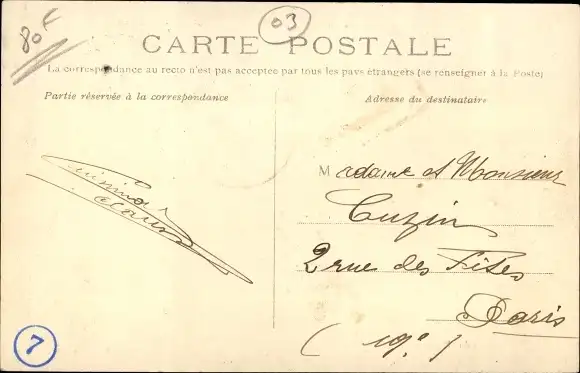 80F
03
CARTE POSTALE
La correspondance au recto n'est pas acceptée par tous les pays étrangers (se renseigner à la Poste)
Partie réservée à la correspondance
Adresse du destinataire
Madame et Monsieur
Cuzin
2 rue des Fêtes
Paris
(19e)
7